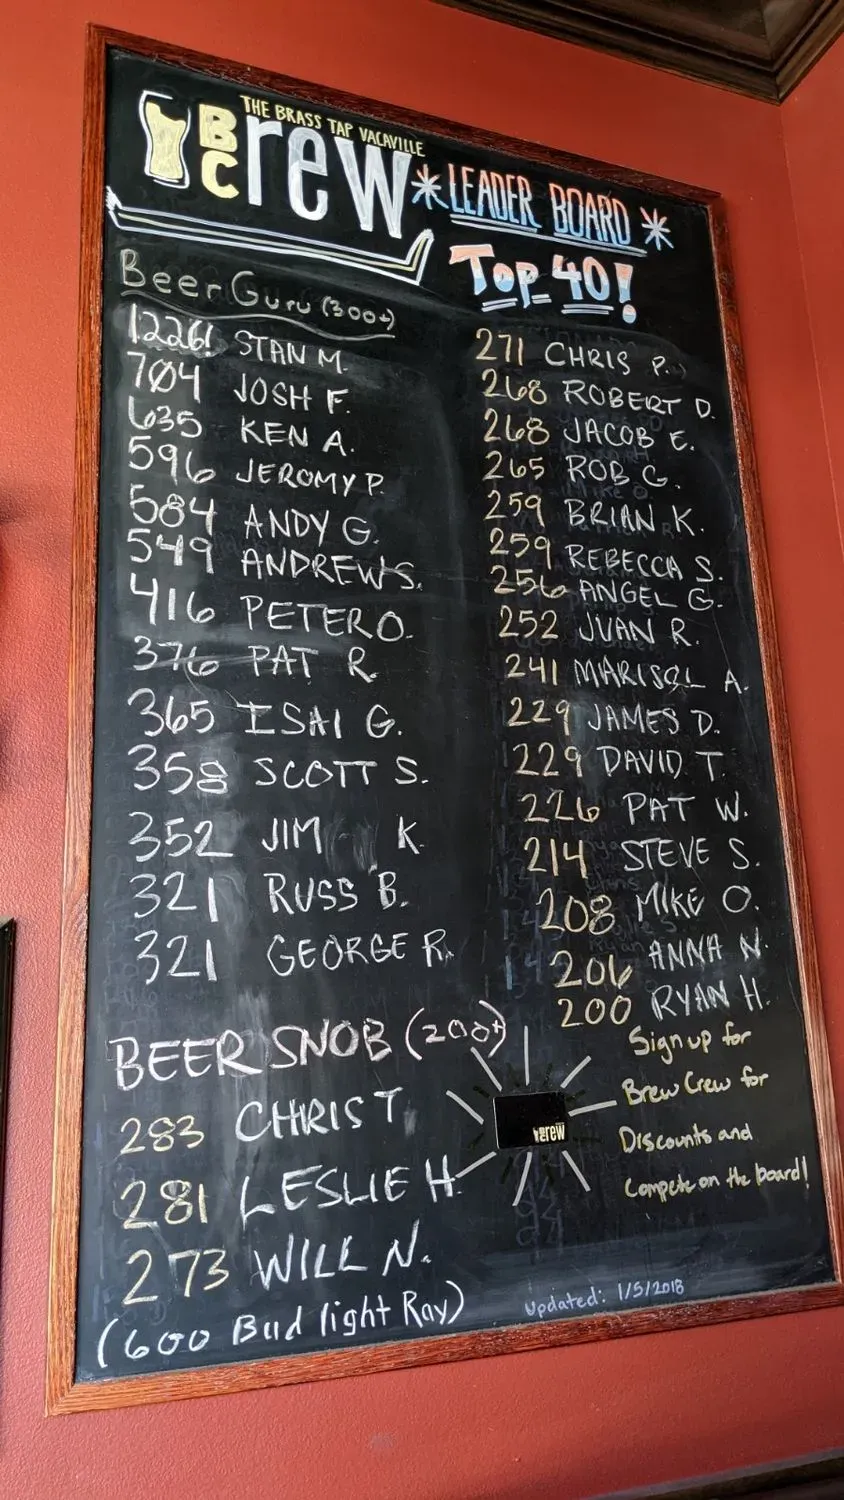 THE BRASS TAP VACAVILLE
BC
Brew
* LEADER BOARD *
Top 40!
Beer Guru (300+)
1226! STAN M.
704 JOSH F.
635 KEN A.
596 JEROMY P.
584 ANDY G.
549 ANDREW S.
416 PETER O.
376 PAT R.
365 ISAI G.
358 SCOTT S.
352 JIM K.
321 RUSS B.
321 GEORGE R.
BEER SNOB (200+)
283 CHRIS T.
281 LESLIE H.
273 WILL N.
(600 Bud light Ray)
271 CHRIS P.
268 ROBERT D.
268 JACOB E.
265 ROB G.
259 BRIAN K.
259 REBECCA S.
256 ANGEL G.
252 JUAN R.
241 MARISOL A.
229 JAMES D.
229 DAVID T.
226 PAT W.
214 STEVE S.
208 MIKE O.
206 ANNA N.
200 RYAN H.
Sign up for
Brew Crew for
Discounts and
Compete on the board!
Brew
Updated: 1/5/2018